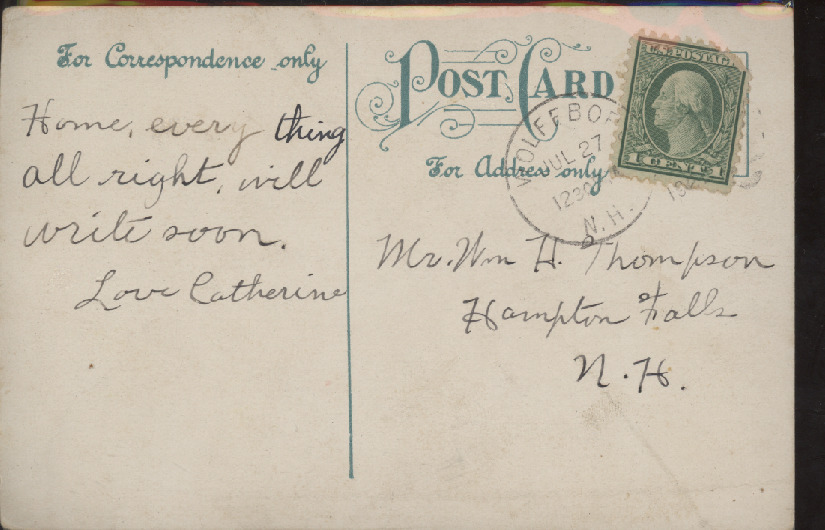 For Correspondence only
Home, every thing
all right, will
write soon.
Love Catherine
POST CARD
For Address only
JUL 27
1230
N.H.
U.S. POSTAGE
1 CENT 1
Mr. Wm H. Thompson
Hampton Falls
N.H.